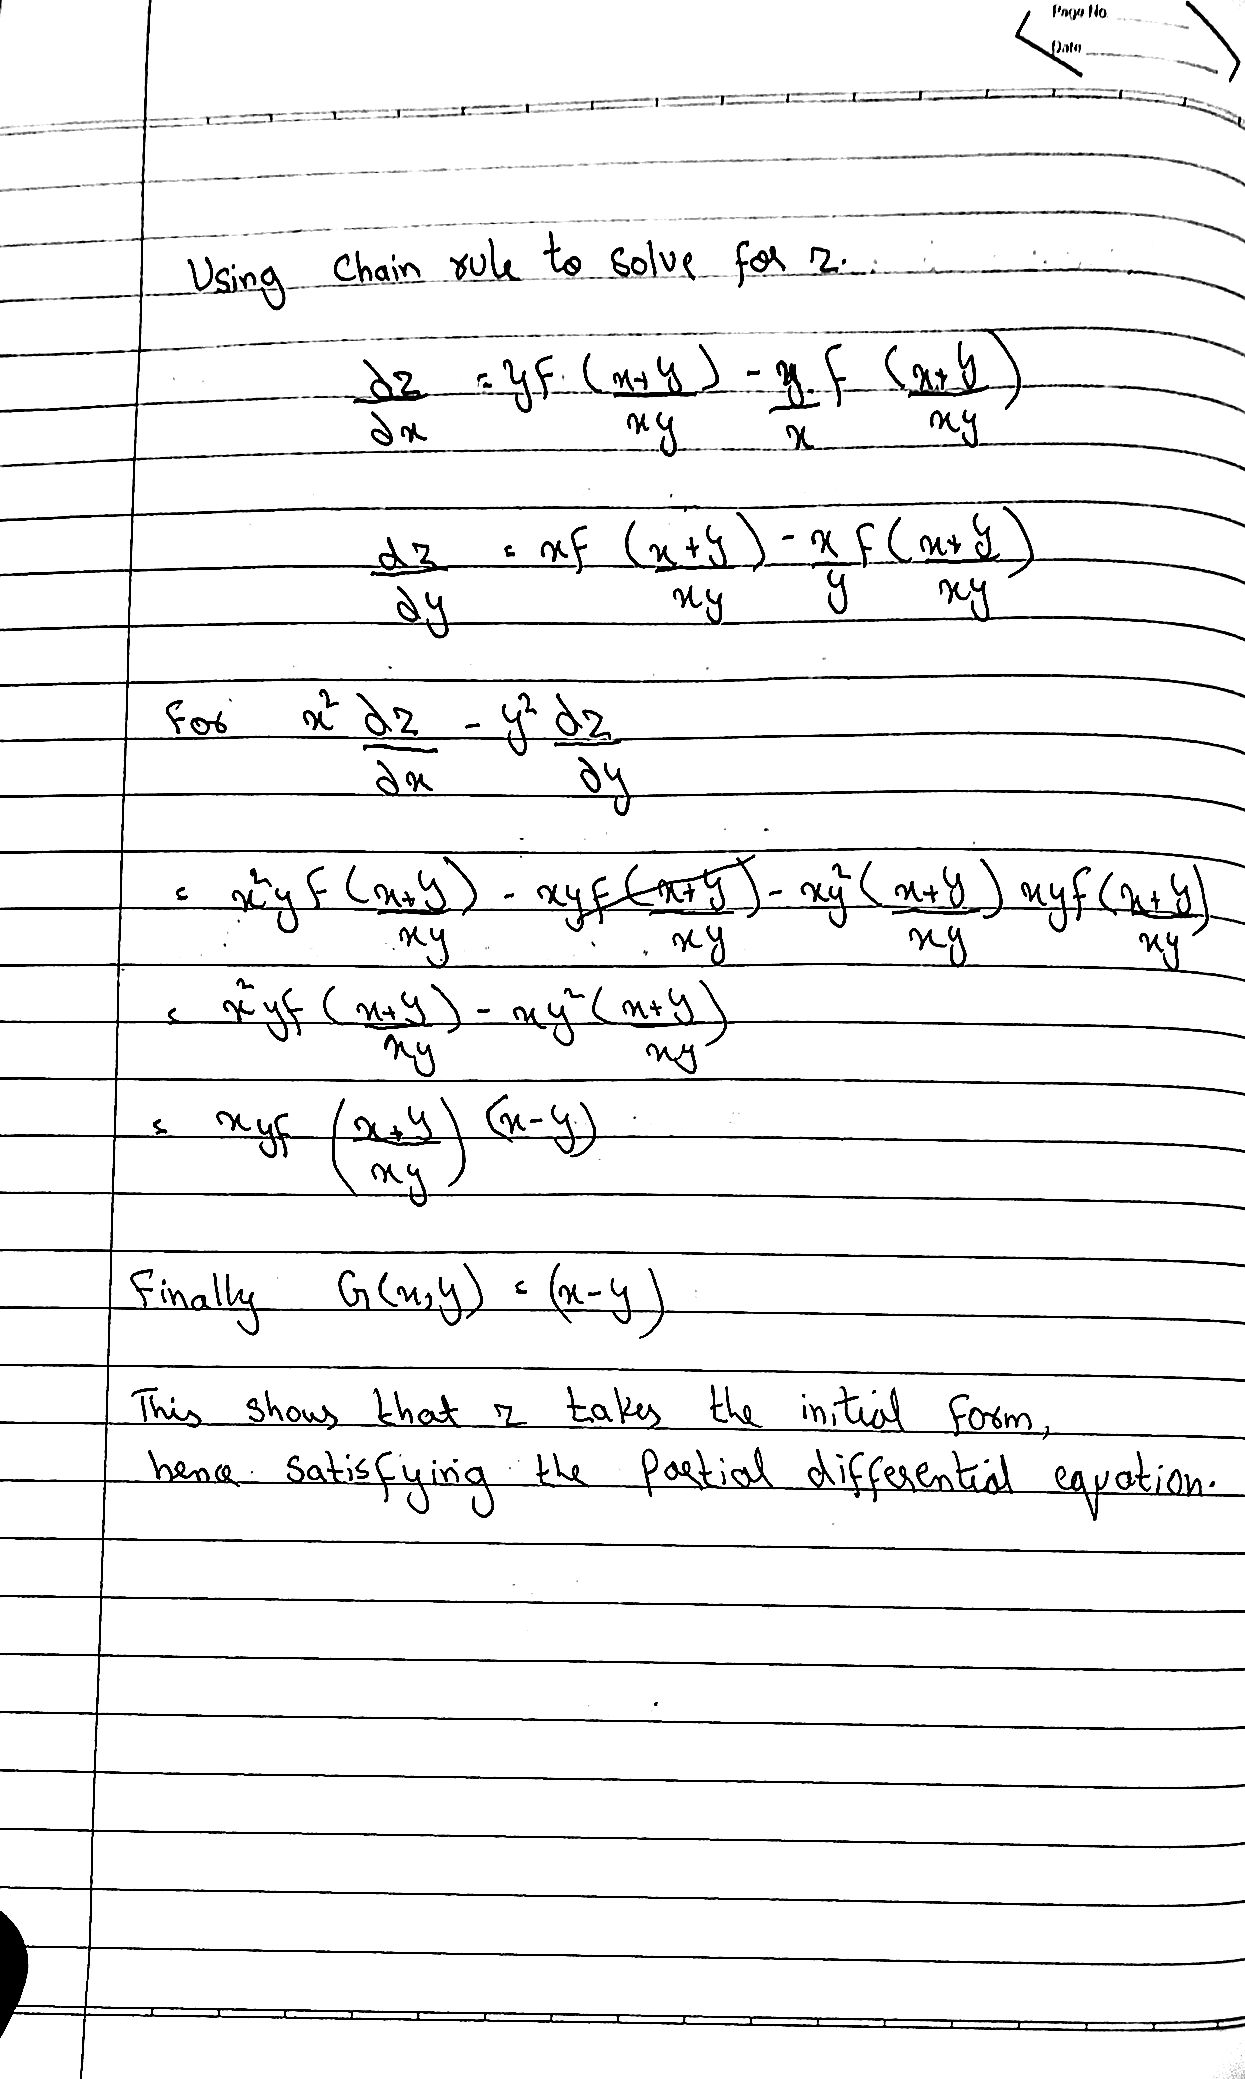 Page No
Date
Using Chain rule to solve for z.
∂z/∂x = yf (x+y/xy) - y/x f (x+y/xy)
∂z/∂y = xf (x+y/xy) - x/y f (x+y/xy)
For x² ∂z/∂x - y² ∂z/∂y
= x²y f (x+y/xy) - xyf (x+y/xy) - xy² (x+y/xy) xyf (x+y/xy)
= x²yf (x+y/xy) - xy² (x+y/xy)
= xyf (x+y/xy) (x-y)
Finally G(x,y) = (x-y)
This shows that z takes the initial form,
hence satisfying the Partial differential equation.